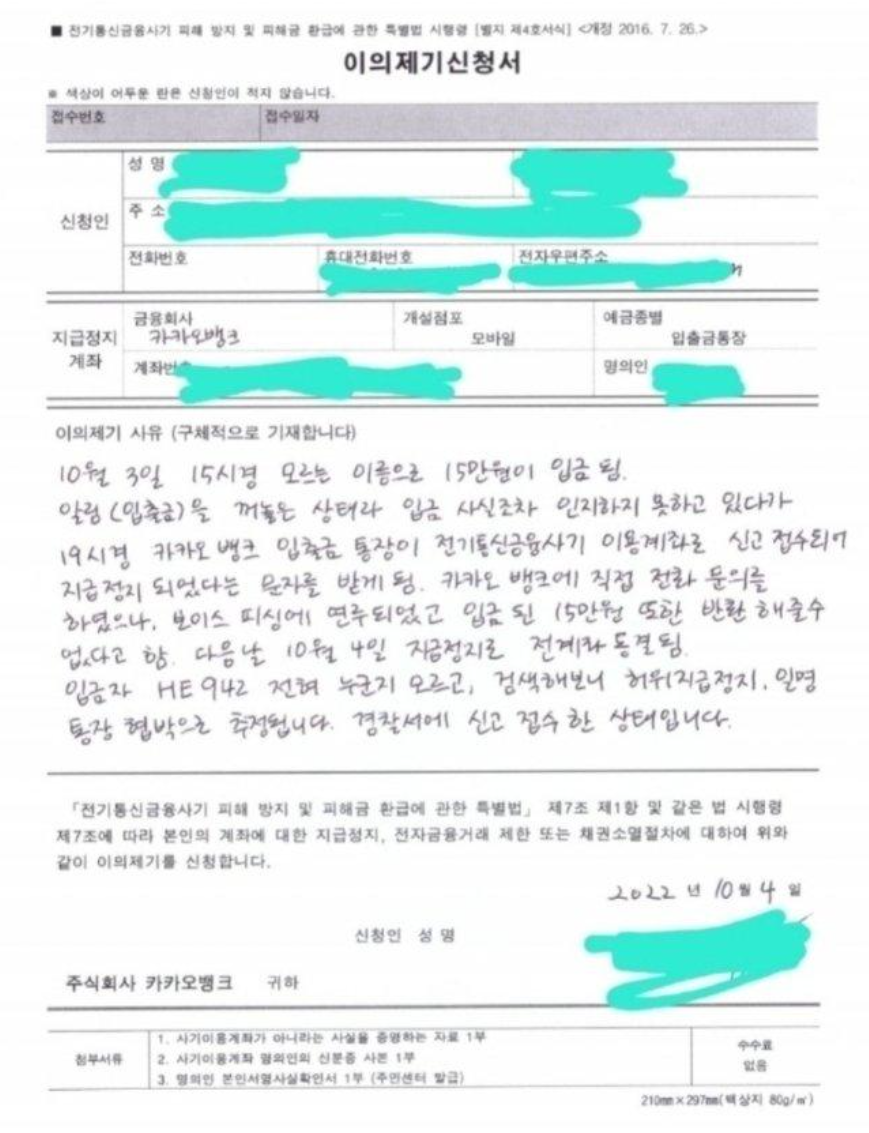 ■ 전기통신금융사기 피해 방지 및 피해금 환급에 관한 특별법 시행령 [별지 제4호서식] <개정 2016. 7. 26.>
이의제기신청서
※ 색상이 어두운 란은 신청인이 적지 않습니다.
접수번호 접수일자
신청인
성 명
주 소
전화번호 휴대전화번호 전자우편주소
지급정지 계좌
금융회사 개설점포 예금종별
카카오뱅크 모바일 입출금통장
계좌번호 명의인
이의제기 사유 (구체적으로 기재합니다)
10월 3일 15시경 모르는 이름으로 15만원이 입금 됨.
알림(입출금)을 꺼놓은 상태라 입금 사실조차 인지하지 못하고 있다가
19시경 카카오 뱅크 입출금 통장이 전기통신금융사기 이용계좌로 신고 접수되어
지급정지 되었다는 문자를 받게 됨. 카카오 뱅크에 직접 전화 문의를
하였으나, 보이스 피싱에 연루되었고 입금 된 15만원 또한 반환 해줄수
없다고 함. 다음날 10월 4일 지급정지로 전계좌 동결됨.
입금자 HE942 전혀 누군지 모르고, 검색해보니 허위지급정지, 일명
통장 협박으로 추정됩니다. 경찰서에 신고 접수 한 상태입니다.
「전기통신금융사기 피해 방지 및 피해금 환급에 관한 특별법」 제7조 제1항 및 같은 법 시행령
제7조에 따라 본인의 계좌에 대한 지급정지, 전자금융거래 제한 또는 채권소멸절차에 대하여 위와
같이 이의제기를 신청합니다.
2022 년 10 월 4 일
신청인 성 명
주식회사 카카오뱅크 귀하
첨부서류
1. 사기이용계좌가 아니라는 사실을 증명하는 자료 1부
2. 사기이용계좌 명의인의 신분증 사본 1부
3. 명의인 본인서명사실확인서 1부 (주민센터 발급)
수수료
없음
210㎜×297㎜(백상지 80g/㎡)